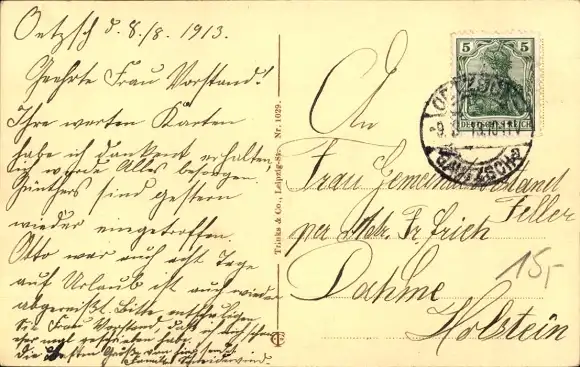 Oetzsch d. 8./8. 1913.
Geehrte Frau Vorstand!
Ihre werten Karten
habe ich dankent erhalten,
ich werde Alles besorgen.
Günthers sind gestern
wieder eingetroffen.
Otto war auch acht Tage
auf Urlaub ist auch wieder
abgereißt. Bitte entschuldigen
Sie Frau Vorstand, daß ich nicht schon
eher mal geschrieben habe.
Die besten Grüße von hier sendet
Familie
Trinks & Co., Leipzig-Sp. Nr. 1029.
5 5
DEUTSCHES REICH
OETZSCH
GAUTZSCH
An
Frau Gemeindevorstand
Feller
per Adr. Fr. Erich
Dahme
Holstein
15,-